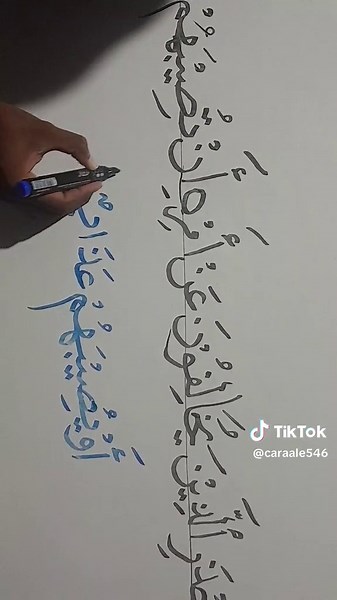 الَّذِينَ يُخَالِفُونَ عَنْ أَمْرِهِ أَنْ تُصِيبَهُمْ
أَوْ يُصِيبَهُمْ عَذَابٌ
TikTok
@caraale546